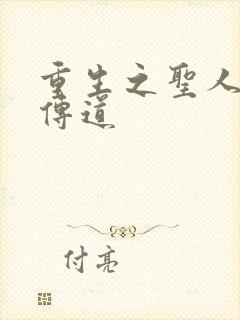 重生之聖人
傳道
付亮